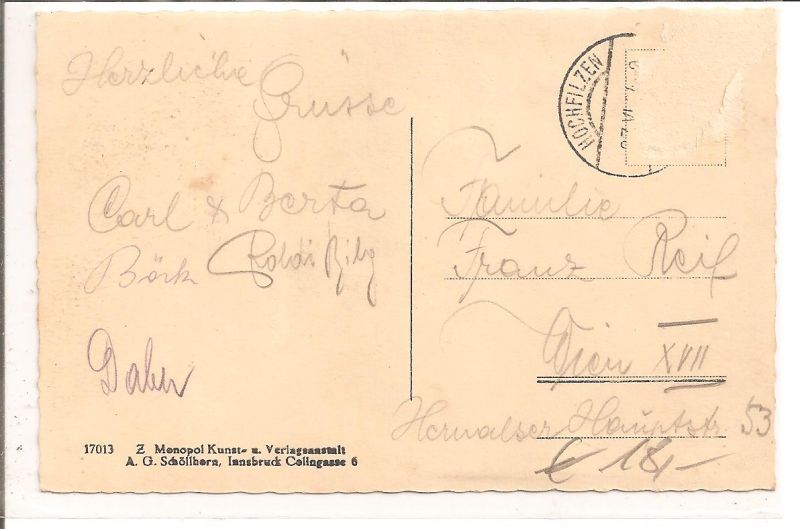 Herzliche
Grüsse
Carl & Berta
Böck
HOCHFILZEN
Familie
Franz Reil
Wien XVII
Hernalser Hauptstr 53
€ 18,-
17013 Z Monopol Kunst- u. Verlagsanstalt
A. G. Schöllhorn, Innsbruck Colingasse 6